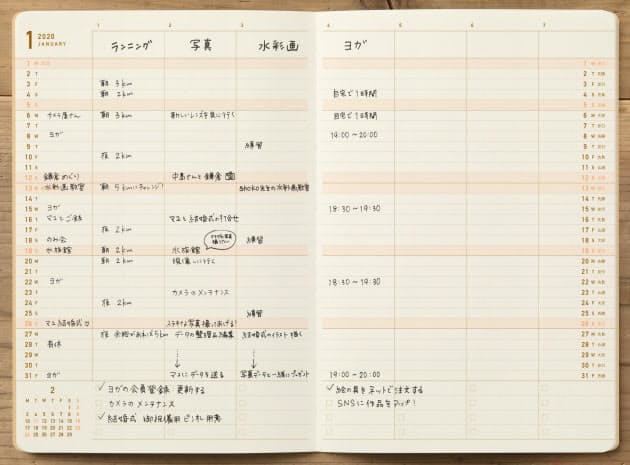 1 2020 JANUARY
1 2 3 4 5 6 7
ランニング 写真 水彩画 ヨガ
1 W
2 T
3 F 朝 3km
4 S 朝 2km 自宅で1時間
5 S
6 M カメラ屋さん 朝 3km 新しいレンズを見に行く 自宅で1時間
7 T
8 W ヨガ 19:00〜20:00
9 T 練習
10 F 夜 2km
11 S
12 S 鎌倉めぐり 中島さんと鎌倉
13 M 水彩画教室 朝 5kmにチャレンジ! shoko先生の水彩画教室
14 T
15 W ヨガ 18:30〜19:30
16 T マユとご飯 マユと結婚式の打合せ
17 F 夜 2km
18 S のみ会 練習
19 S 水族館 朝 2km 水族館
20 M 朝 2km 現像しに行く
21 T
22 W ヨガ 18:30〜19:30
23 T カメラのメンテナンス
24 F 夜 2km
25 S 練習
26 S マユ結婚式 ステキな写真撮ってあげる!
27 M 夜 余裕があれば5km データの整理&編集 結婚式のイラスト描く
28 T 有休
29 W
30 T
31 F ヨガ マユにデータを送る 写真データと一緒にプレゼント 19:00〜20:00
2
M T W T F S S
1 2
3 4 5 6 7 8 9
10 11 12 13 14 15 16
17 18 19 20 21 22 23
24 25 26 27 28 29
✓ ヨガの会員登録 更新する
カメラのメンテナンス
✓ 結婚式 御祝儀用ピン札用意
✓ 絵の具をネットで注文する
SNSに作品をアップ!